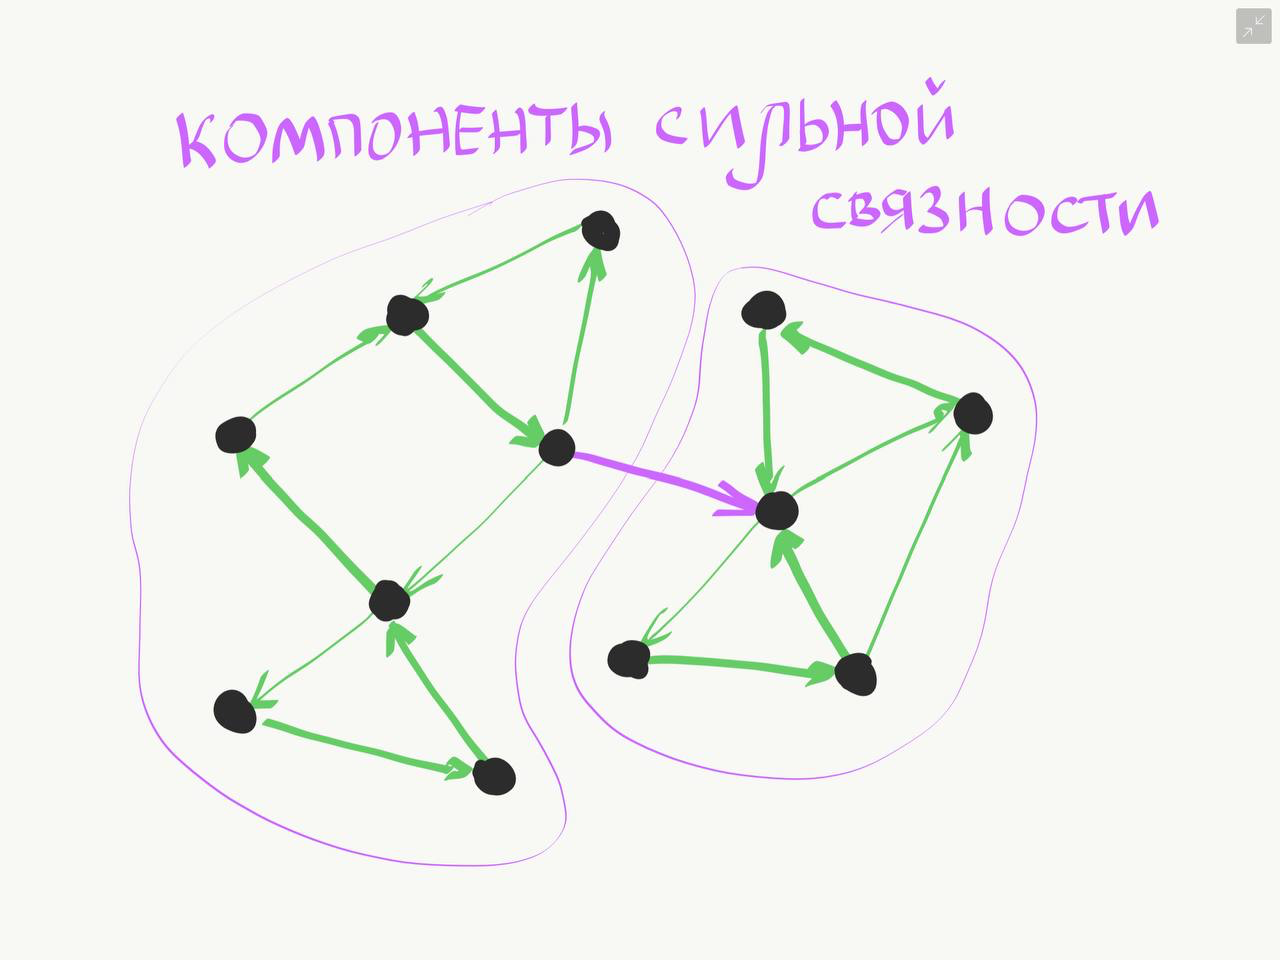 компоненты сильной
связности